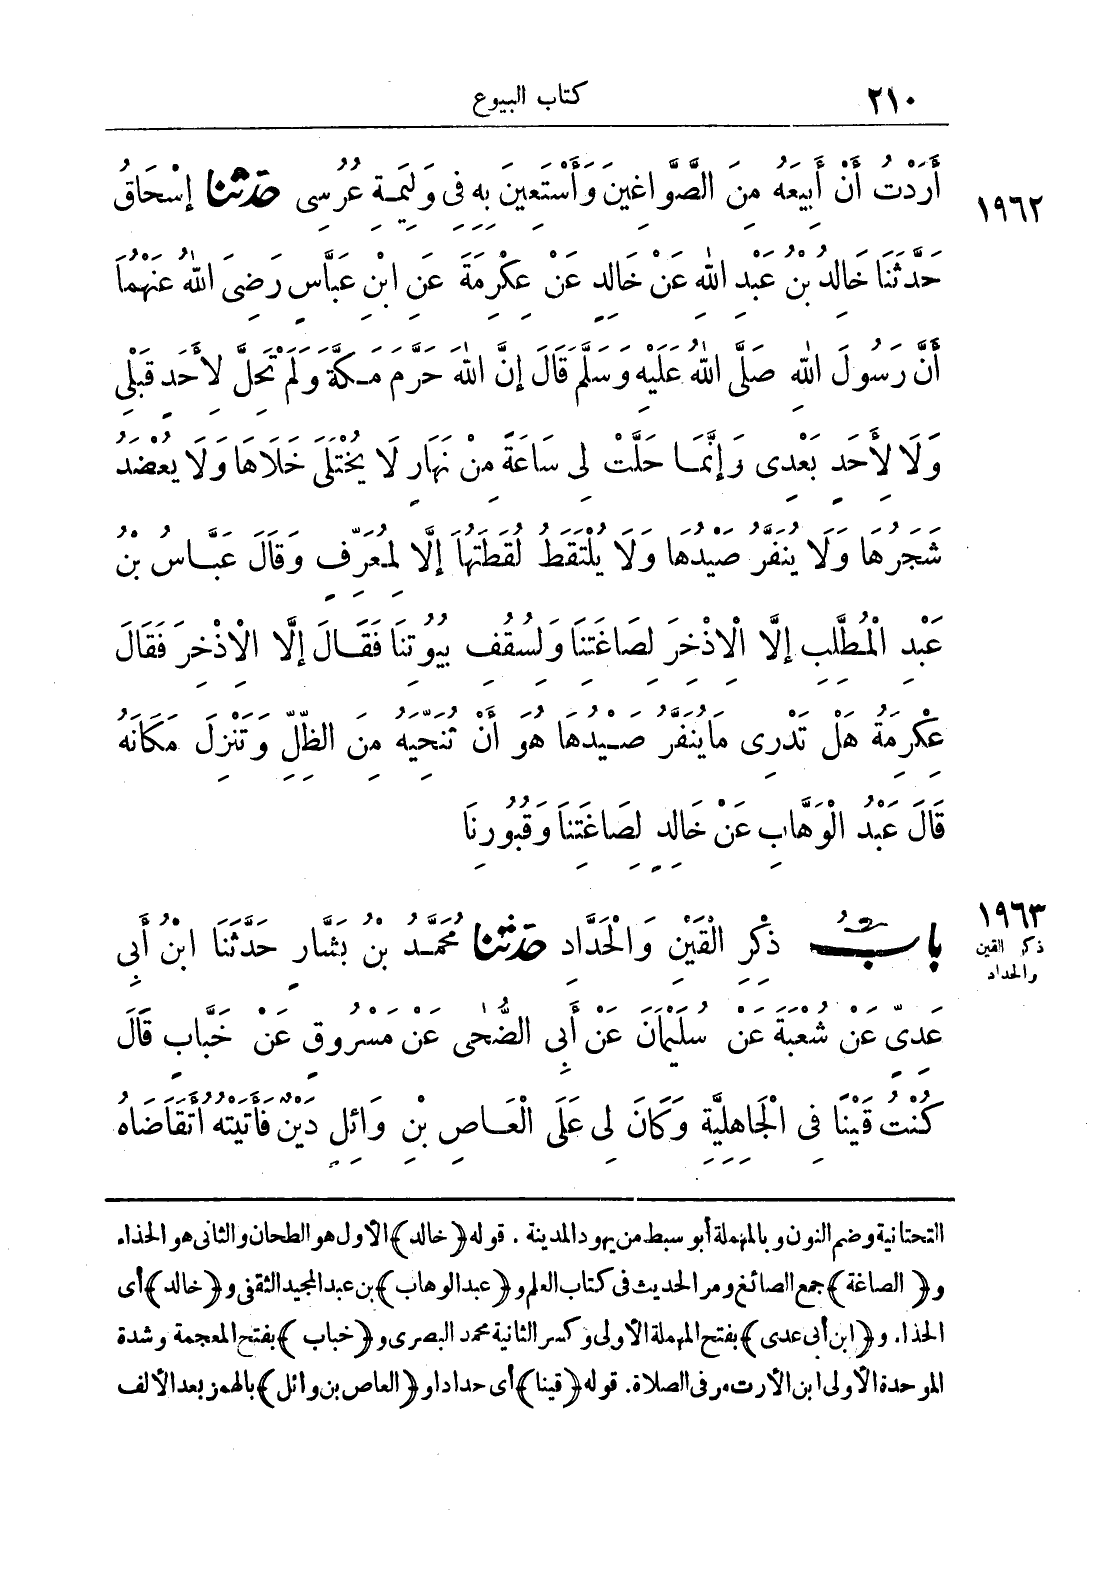 ٢١٠ كتاب البيوع
أَرَدْتُ أَنْ أَبِيعَهُ مِنَ الصَّوَّاغِينَ وَأَسْتَعِينَ بِهِ فِي وَلِيمَةِ عُرُسِى حَدَّثَنَا إِسْحَاقُ ١٩٦٢
حَدَّثَنَا خَالِدُ بْنُ عَبْدِ اللهِ عَنْ خَالِدٍ عَنْ عِكْرِمَةَ عَنِ ابْنِ عَبَّاسٍ رَضِىَ اللهُ عَنْهُمَا
أَنَّ رَسُولَ اللهِ صَلَّى اللهُ عَلَيْهِ وَسَلَّمَ قَالَ إِنَّ اللهَ حَرَّمَ مَكَّةَ وَلَمْ تَحِلَّ لِأَحَدٍ قَبْلِى
وَلَا لِأَحَدٍ بَعْدِى وَإِنَّمَا حَلَّتْ لِى سَاعَةً مِنْ نَهَارٍ لَا يُخْتَلَى خَلَاهَا وَلَا يُعْضَدُ
شَجَرُهَا وَلَا يُنَفَّرُ صَيْدُهَا وَلَا يُلْتَقَطُ لُقَطَتُهَا إِلَّا لِمُعَرِّفٍ وَقَالَ عَبَّاسُ بْنُ
عَبْدِ الْمُطَّلِبِ إِلَّا الْإِذْخِرَ لِصَاغَتِنَا وَلِسُقُفِ بُيُوتِنَا فَقَالَ إِلَّا الْإِذْخِرَ فَقَالَ
عِكْرِمَةُ هَلْ تَدْرِى مَا يُنَفَّرُ صَيْدُهَا هُوَ أَنْ تُنَحِّيَهُ مِنَ الظِّلِّ وَتَنْزِلَ مَكَانَهُ
قَالَ عَبْدُ الْوَهَّابِ عَنْ خَالِدٍ لِصَاغَتِنَا وَقُبُورِنَا
بَابُ ذِكْرِ الْقَيْنِ وَالْحَدَّادِ حَدَّثَنَا مُحَمَّدُ بْنُ بَشَّارٍ حَدَّثَنَا ابْنُ أَبِى ١٩٦٣
ذكر القين
والحداد
عَدِىٍّ عَنْ شُعْبَةَ عَنْ سُلَيْمَانَ عَنْ أَبِى الضُّحَى عَنْ مَسْرُوقٍ عَنْ خَبَّابٍ قَالَ
كُنْتُ قَيْنًا فِى الْجَاهِلِيَّةِ وَكَانَ لِى عَلَى الْعَاصِ بْنِ وَائِلٍ دَيْنٌ فَأَتَيْتُهُ أَتَقَاضَاهُ
التحتانية وضم النون وبالمهملة أبو سبط من يهود المدينة . قوله ﴿خالد﴾ الأول هو الطحان والثانى هو الحذاء
و﴿الصاغة﴾ جمع الصائغ ومر الحديث فى كتاب العلم و﴿عبد الوهاب﴾ بن عبد المجيد الثقفى و﴿خالد﴾ أى
الحذاء و﴿ابن أبى عدى﴾ بفتح المهملة الأولى وكسر الثانية محمد البصرى و﴿خباب﴾ بفتح المعجمة وشدة
الموحدة الأولى ابن الأرت مر فى الصلاة. قوله ﴿قينا﴾ أى حدادا و﴿العاص بن وائل﴾ بالهمز بعد الألف